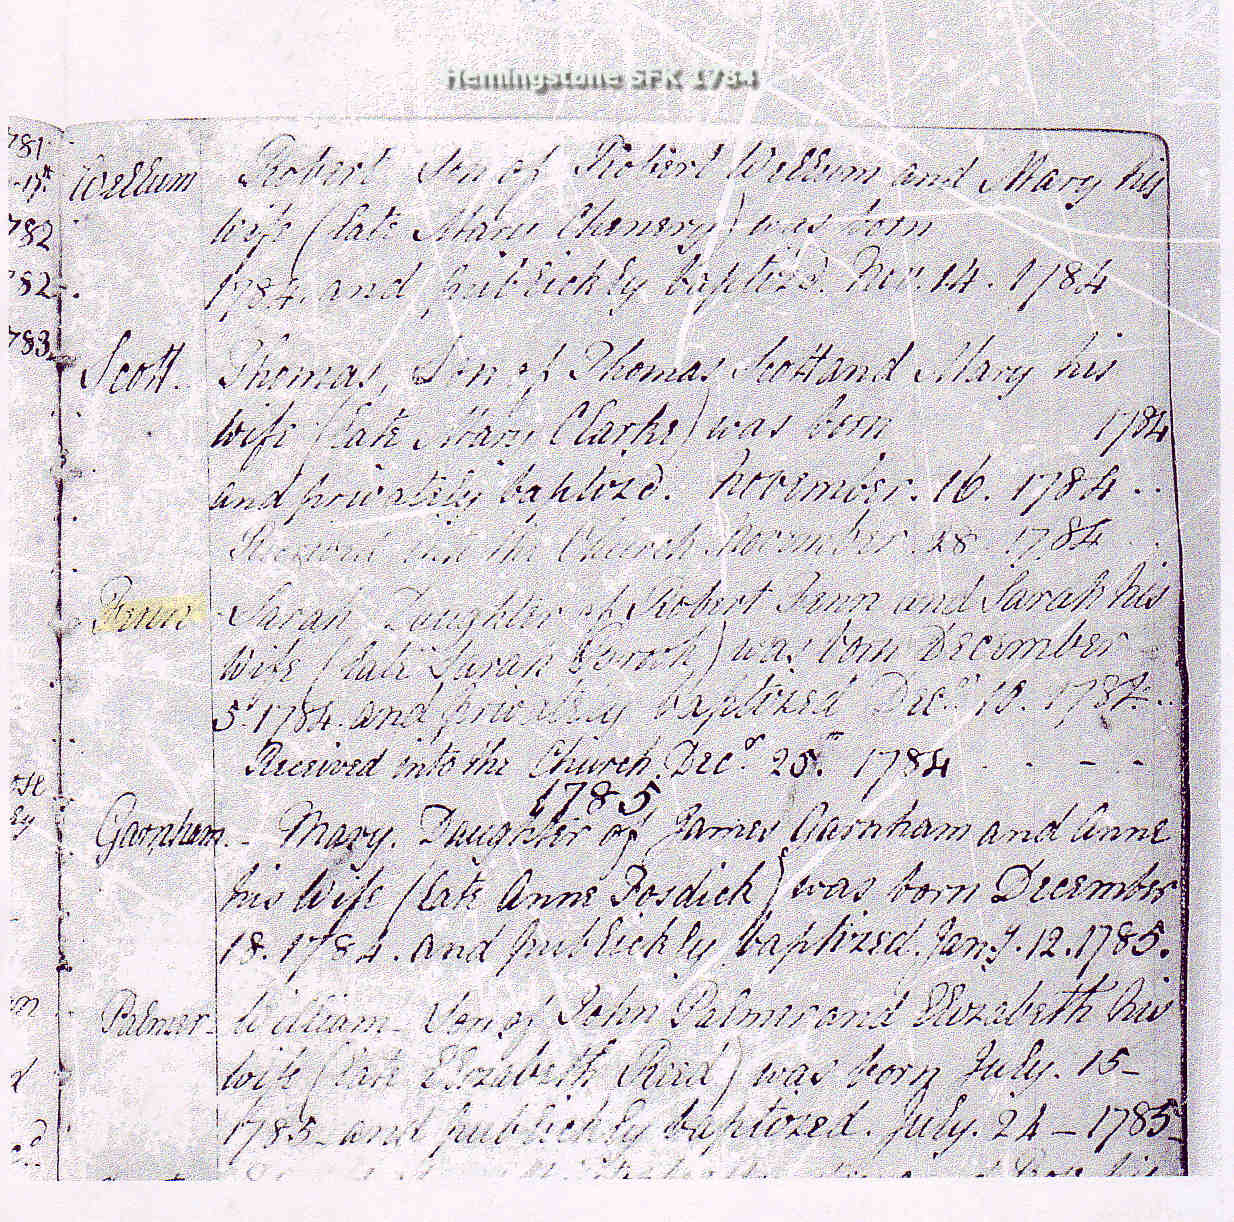 Hemingstone SFK 1784
781
782
782
783
Wellum Robert Son of Robert Wellum and Mary his
wife (late Mary Chenery) was born
1784. and publickly baptized. Nov. 14. 1784
Scott. Thomas, Son of Thomas Scott and Mary his
wife (late Mary Clarke) was born 1784
and privately baptized. November. 16. 1784 . .
Received into the Church November 28 1784
Fenn Sarah Daughter of Robert Fenn and Sarah his
wife (late Sarah) was born December
5. 1784. and privately baptized Decr. 10. 1784 . .
Received into the Church Decr. 25th. 1784 . . - . .
1785
Garnham. - Mary. Daughter of James Garnham and Anne
his Wife (late Anne Fosdick) was born December
18. 1784. and publickly baptized. Jany. 12. 1785.
Palmer - William - Son of John Palmer and Elizabeth his
wife (late Elizabeth Read) was born July. 15 -
1785 - and publickly baptized. July. 24 - 1785 -